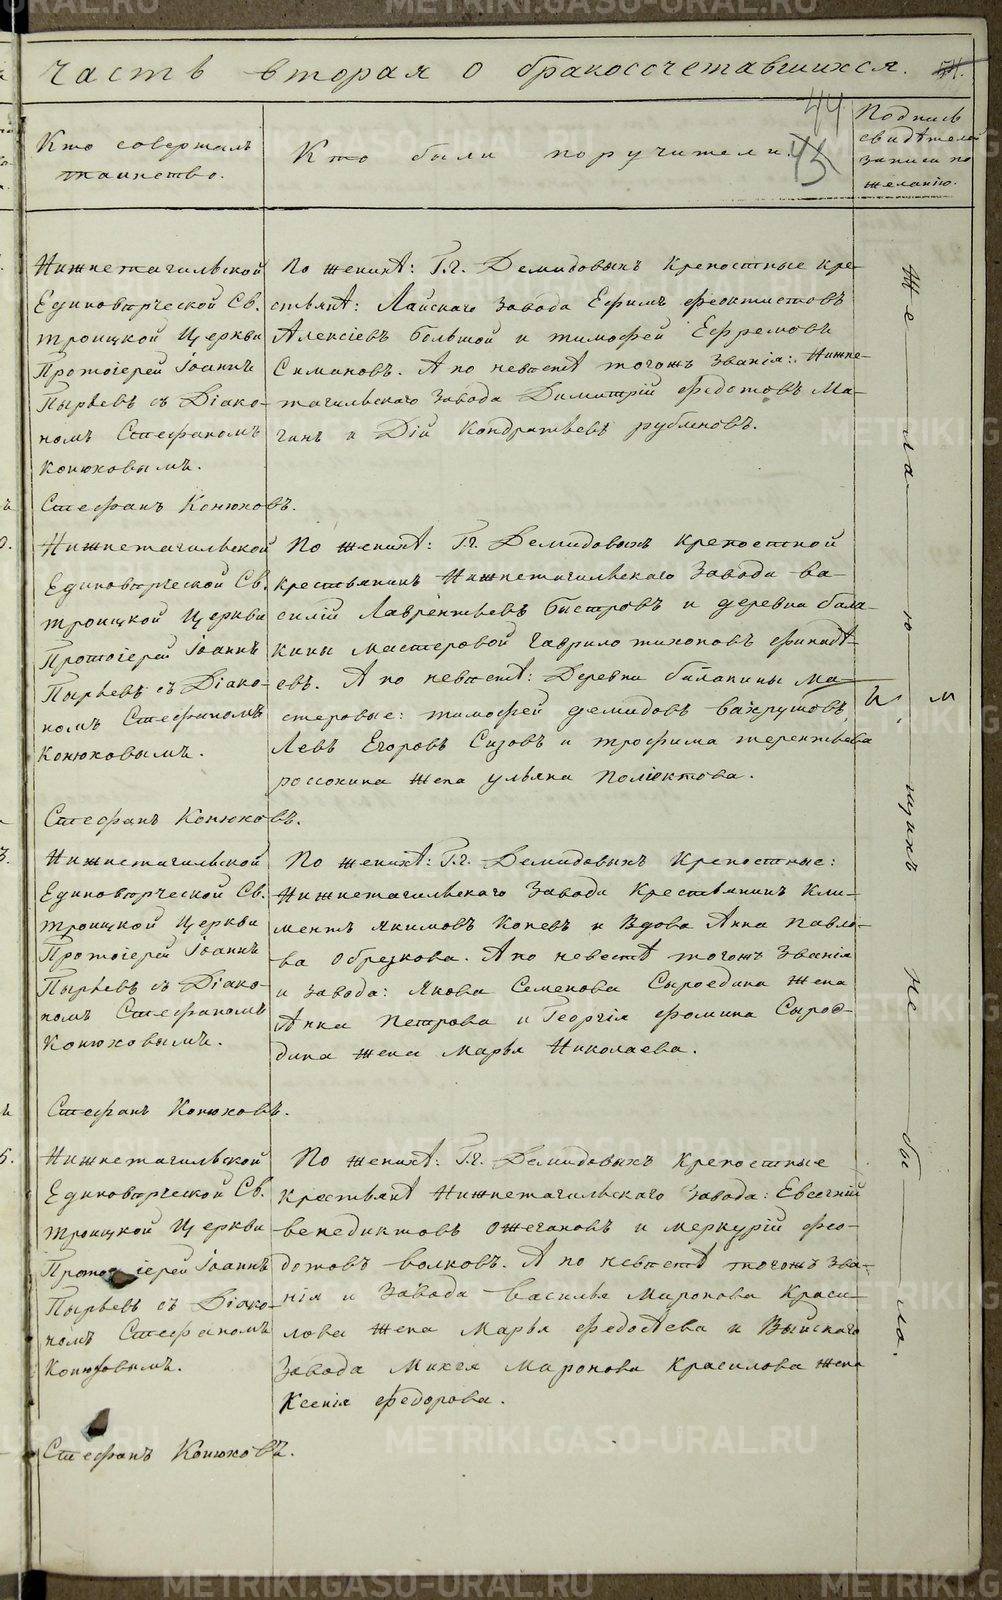 Часть вторая о бракосочетавшихся. 54.
44
45
Кто совершалъ
таинство.
Кто были поручители.
Подпись
свидѣтелей
записи по
желанію.
Нижнетагильской
Единовѣрческой Св.
Троицкой Церкви
Протоіерей Іоаннъ
Пырьевъ съ Діако-
номъ Стефаномъ
Конюховымъ.
Стефанъ Конюховъ.
По женихѣ: Г.г. Демидовыхъ крепостные кре-
стьянѣ: Лайскаго завода Ефимъ Феоктистовъ
Алексіевъ большой и Тимофей Ефремовъ
Симановъ. А по невѣстѣ тогожъ званія: Нижне-
тагильскаго завода Димитрій Федотовъ Ма-
ганъ и Дій Кондратьевъ Рублновъ.
Нижнетагильской
Единовѣрческой Св.
Троицкой Церкви
Протоіерей Іоаннъ
Пырьевъ съ Діако-
номъ Стефаномъ
Конюховымъ.
Стефанъ Конюховъ.
По женихѣ: Г.г. Демидовыхъ крепостной
крестьянинъ Нижнетагильскаго завода Ва-
силій Лаврентьевъ Быстровъ и деревни Бала-
кины мастеровой Гаврило Тихоновъ Финиѣ-
евъ. А по невѣстѣ: Деревни Балакины Ма-
стеровые: Тимофей Демидовъ Вахрушовъ,
Левъ Егоровъ Сизовъ и Трофима Терентьева
Россохина жена Ульяна Поліектова.
Нижнетагильской
Единовѣрческой Св.
Троицкой Церкви
Протоіерей Іоаннъ
Пырьевъ съ Діако-
номъ Стефаномъ
Конюховымъ.
Стефанъ Конюховъ.
По женихѣ: Г.г. Демидовыхъ крепостные:
Нижнетагильскаго завода крестьянинъ Кли-
ментъ Якимовъ Копевъ и вдова Анна Павло-
ва Обрезкова. А по невестѣ тогожъ званія
и завода: Якова Семенова Сыроедина жена
Анна Петрова и Георгія Фомина Сырое-
дина жена Марья Николаева.
Нижнетагильской
Единовѣрческой Св.
Троицкой Церкви
Протоіерей Іоаннъ
Пырьевъ съ Діако-
номъ Стефаномъ
Конюховымъ.
Стефанъ Конюховъ.
По женихѣ: Г.г. Демидовыхъ крепостные
крестьянѣ Нижнетагильскаго завода: Евсегній
Венедиктовъ Ожегановъ и Меркурій Фео-
дотовъ Волковъ. А по невѣстѣ тогожъ зва-
нія и завода Василья Миронова Краси-
лова жена Марья Федосѣева и Выйскаго
завода Михея Миронова Красилова жена
Ксенія Федорова.
Желающихъ не было.
METRIKI.GASO-URAL.RU